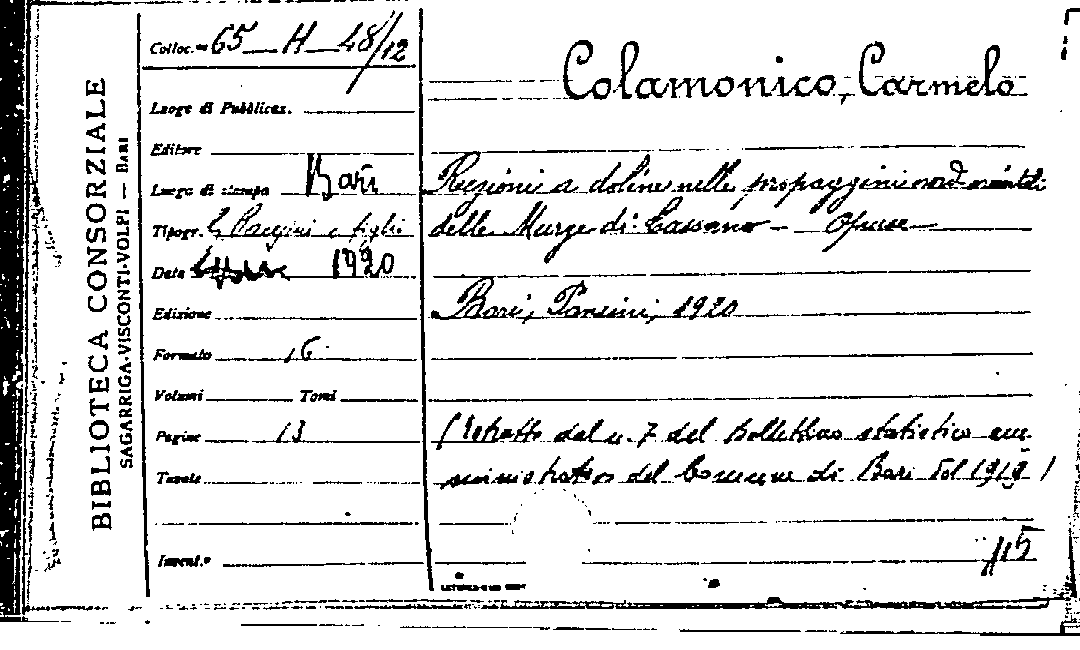 BIBLIOTECA CONSORZIALE
SAGARRIGA-VISCONTI-VOLPI — BARI
Colloc.ne 65 H 48/12
Luogo di Pubblicaz.
Editore
Luogo di stampa Bari
Tipogr. Pansini e figli
Data 1920
Edizione
Formato 16
Volumi Tomi
Pagine 13
Tavole
Invent.o
Colamonico, Carmelo
Regioni a doline nelle propaggini nord-orientali
delle Murge di Cassano — Opusc—
Bari, Pansini, 1920
(Estratto dal n. 7 del Bollettino statistico am-
ministrativo del Comune di Bari del 1919)